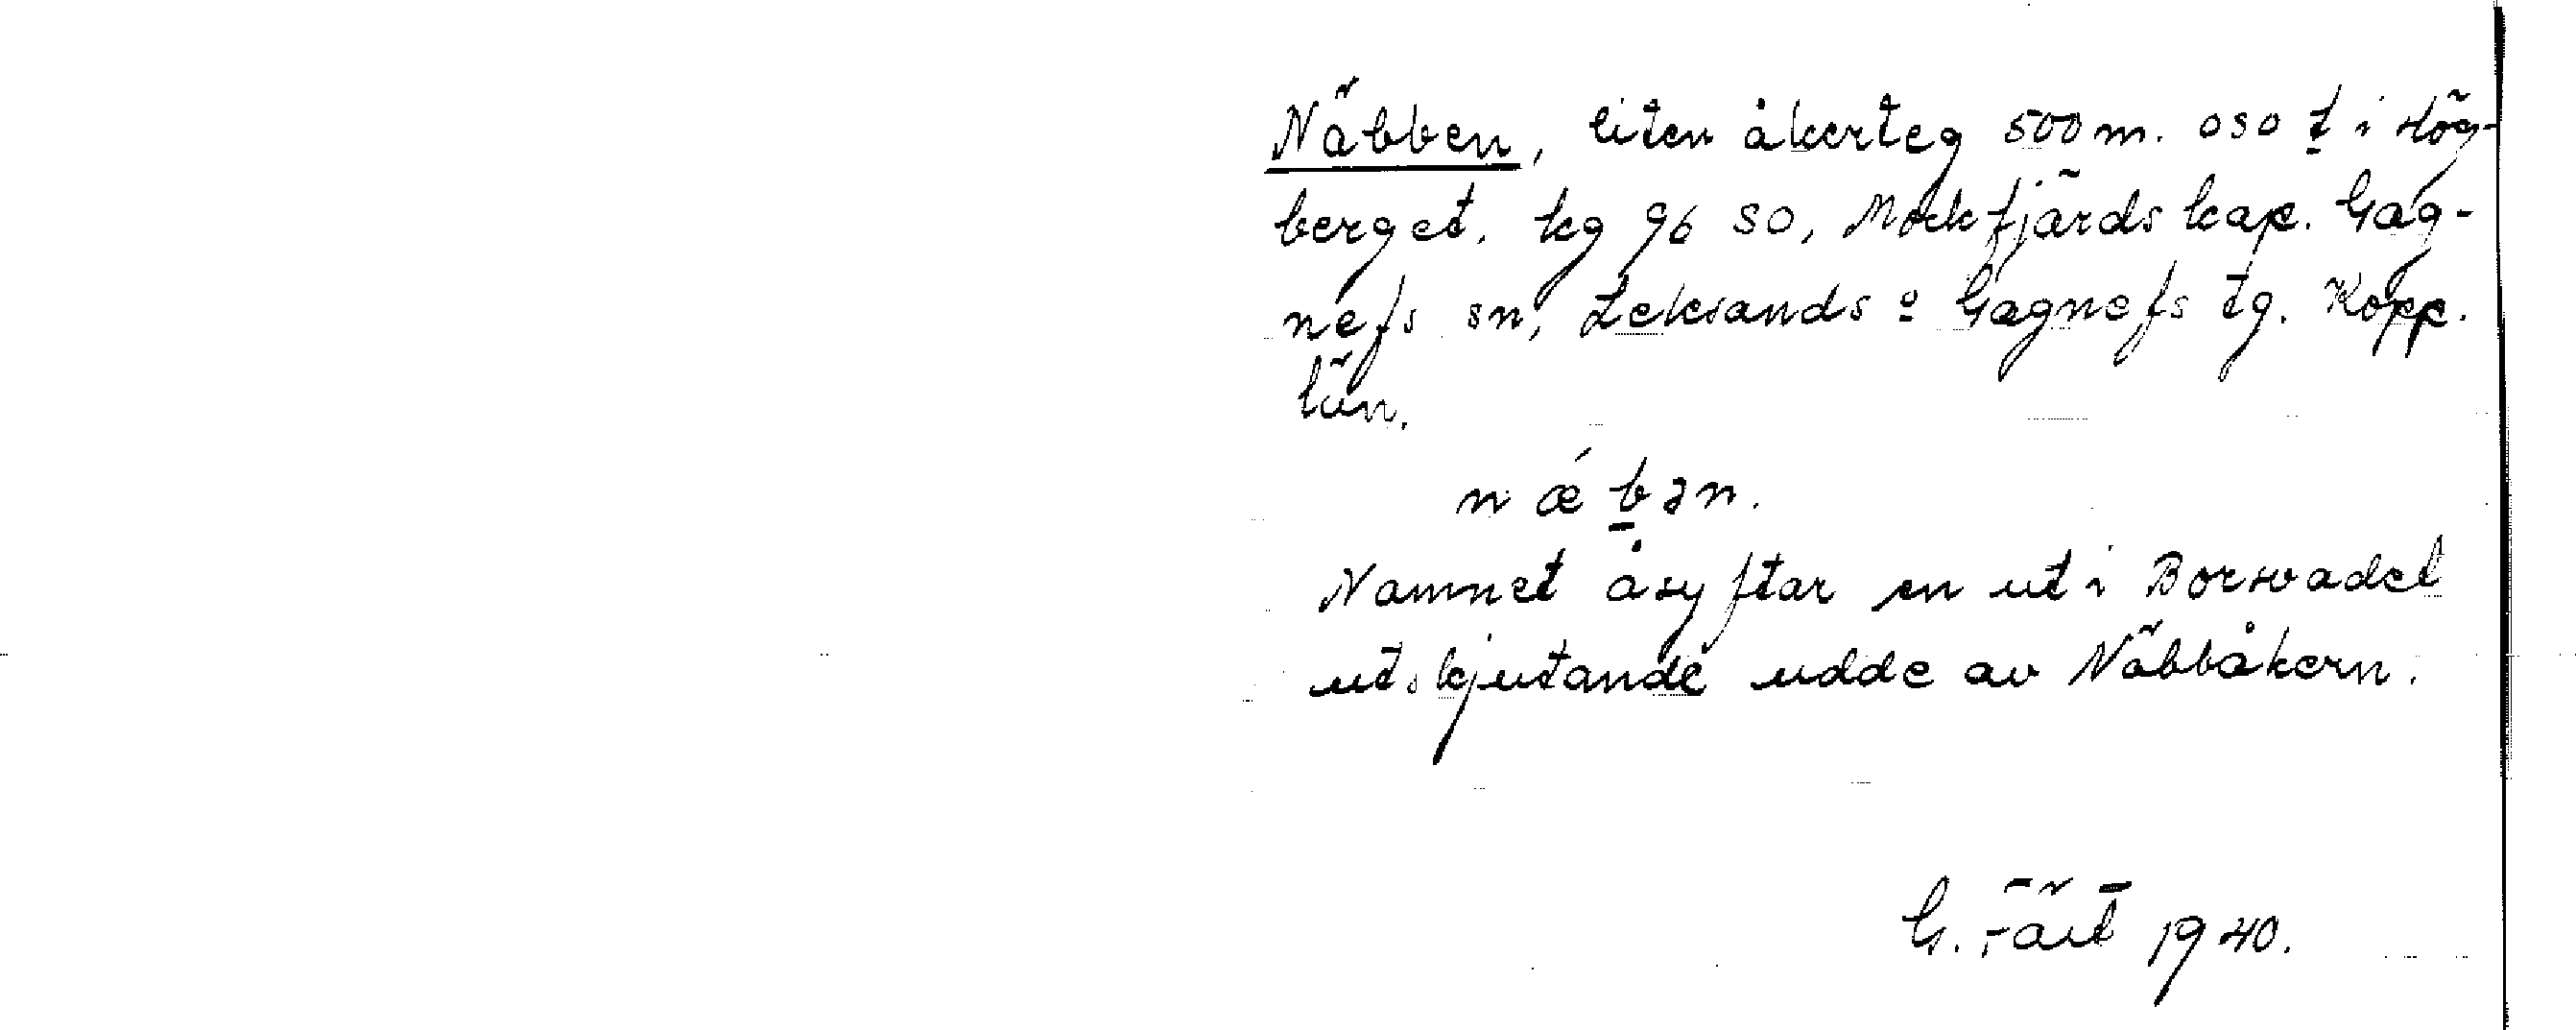 Näbben, liten åkerteg 500 m. oso t i Hög-
berget. kg 96 SO, Mockfjärds kap. Gag-
nefs sn, Leksands o Gagnefs tg. Kopp.
län.
nǽbən.
Namnet åsyftar en ut i Borsvadet
utskjutande udde av Näbbåkern.
G. Fält 1940.